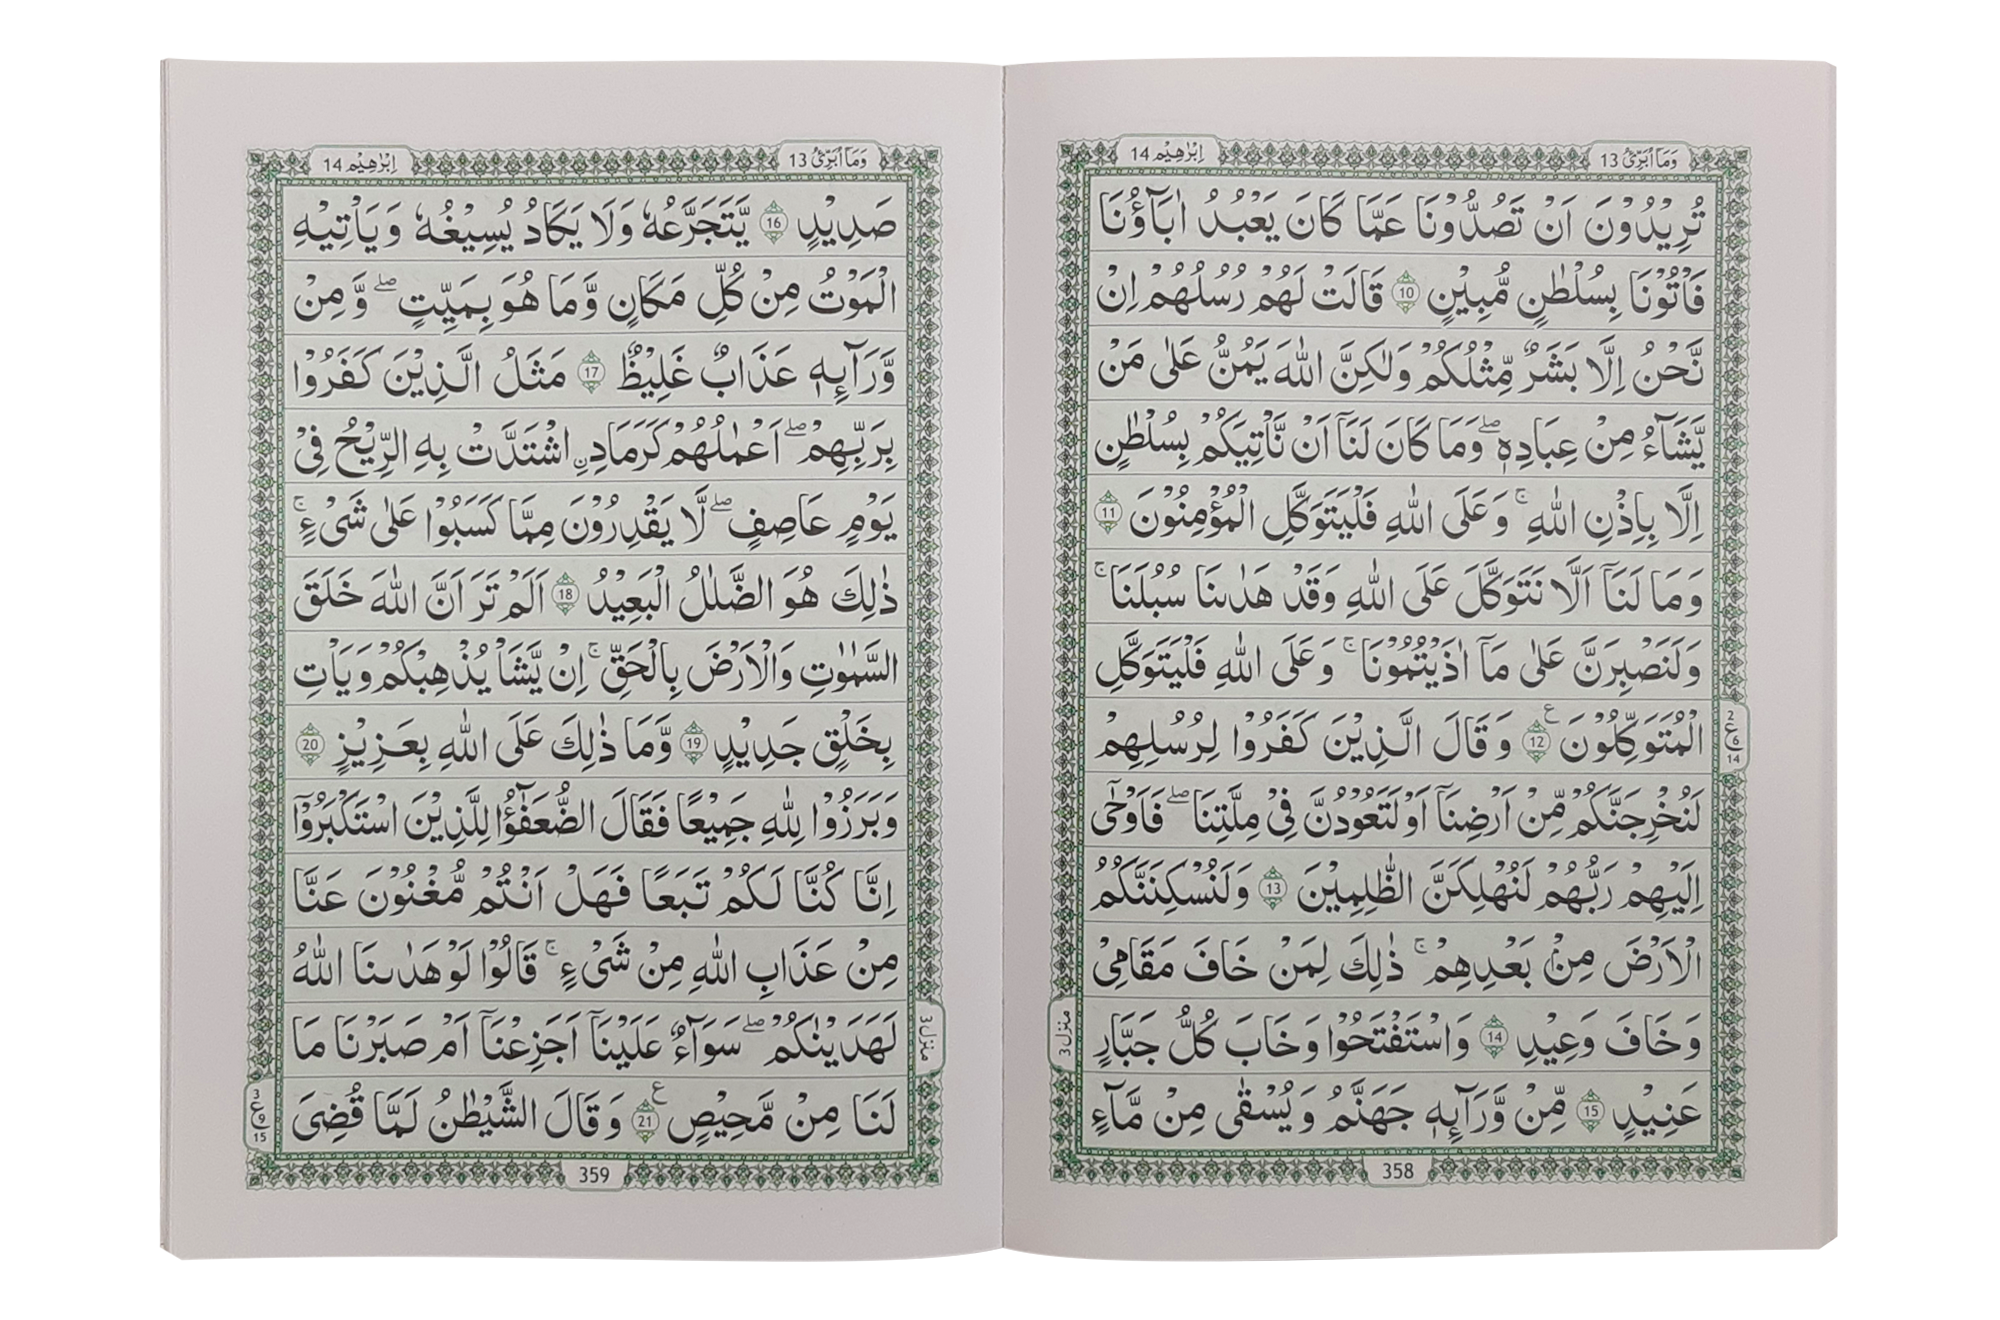 وَمَاۤ اُبَرِّئُ 13
اِبْرٰهِيْم 14
تُرِيْدُوْنَ اَنْ تَصُدُّوْنَا عَمَّا كَانَ يَعْبُدُ اٰبَآؤُنَا
فَاْتُوْنَا بِسُلْطٰنٍ مُّبِيْنٍ 10 قَالَتْ لَهُمْ رُسُلُهُمْ اِنْ
نَّحْنُ اِلَّا بَشَرٌ مِّثْلُكُمْ وَلٰكِنَّ اللّٰهَ يَمُنُّ عَلٰى مَنْ
يَّشَآءُ مِنْ عِبَادِهٖ ۖ وَمَا كَانَ لَنَاۤ اَنْ نَّاْتِيَكُمْ بِسُلْطٰنٍ
اِلَّا بِاِذْنِ اللّٰهِ ۚ وَعَلَى اللّٰهِ فَلْيَتَوَكَّلِ الْمُؤْمِنُوْنَ 11
وَمَا لَنَاۤ اَلَّا نَتَوَكَّلَ عَلَى اللّٰهِ وَقَدْ هَدٰىنَا سُبُلَنَا ۚ
وَلَنَصْبِرَنَّ عَلٰى مَاۤ اٰذَيْتُمُوْنَا ۚ وَعَلَى اللّٰهِ فَلْيَتَوَكَّلِ
الْمُتَوَكِّلُوْنَ 12 ع وَقَالَ الَّذِيْنَ كَفَرُوْا لِرُسُلِهِمْ
2 ع 6 14
لَنُخْرِجَنَّكُمْ مِّنْ اَرْضِنَاۤ اَوْ لَتَعُوْدُنَّ فِيْ مِلَّتِنَا ۖ فَاَوْحٰۤى
اِلَيْهِمْ رَبُّهُمْ لَنُهْلِكَنَّ الظّٰلِمِيْنَ 13 وَلَنُسْكِنَنَّكُمُ
الْاَرْضَ مِنْۢ بَعْدِهِمْ ۚ ذٰلِكَ لِمَنْ خَافَ مَقَامِيْ
وَخَافَ وَعِيْدِ 14 وَاسْتَفْتَحُوْا وَخَابَ كُلُّ جَبَّارٍ
منزل 3
عَنِيْدٍ 15 مِّنْ وَّرَآئِهٖ جَهَنَّمُ وَيُسْقٰى مِنْ مَّآءٍ
358
وَمَاۤ اُبَرِّئُ 13
اِبْرٰهِيْم 14
صَدِيْدٍ 16 يَّتَجَرَّعُهٗ وَلَا يَكَادُ يُسِيْغُهٗ وَيَاْتِيْهِ
الْمَوْتُ مِنْ كُلِّ مَكَانٍ وَّمَا هُوَ بِمَيِّتٍ ۖ وَمِنْ
وَّرَآئِهٖ عَذَابٌ غَلِيْظٌ 17 مَثَلُ الَّذِيْنَ كَفَرُوْا
بِرَبِّهِمْ ۖ اَعْمٰلُهُمْ كَرَمَادِ ِۨ اشْتَدَّتْ بِهِ الرِّيْحُ فِيْ
يَوْمٍ عَاصِفٍ ۖ لَّا يَقْدِرُوْنَ مِمَّا كَسَبُوْا عَلٰى شَيْءٍ ۚ
ذٰلِكَ هُوَ الضَّلٰلُ الْبَعِيْدُ 18 اَلَمْ تَرَ اَنَّ اللّٰهَ خَلَقَ
السَّمٰوٰتِ وَالْاَرْضَ بِالْحَقِّ ۚ اِنْ يَّشَاْ يُذْهِبْكُمْ وَيَاْتِ
بِخَلْقٍ جَدِيْدٍ 19 وَّمَا ذٰلِكَ عَلَى اللّٰهِ بِعَزِيْزٍ 20
وَبَرَزُوْا لِلّٰهِ جَمِيْعًا فَقَالَ الضُّعَفٰٓؤُا لِلَّذِيْنَ اسْتَكْبَرُوْۤا
اِنَّا كُنَّا لَكُمْ تَبَعًا فَهَلْ اَنْتُمْ مُّغْنُوْنَ عَنَّا
مِنْ عَذَابِ اللّٰهِ مِنْ شَيْءٍ ۚ قَالُوْا لَوْ هَدٰىنَا اللّٰهُ
لَهَدَيْنٰكُمْ ۖ سَوَآءٌ عَلَيْنَاۤ اَجَزِعْنَاۤ اَمْ صَبَرْنَا مَا
منزل 3
لَنَا مِنْ مَّحِيْصٍ 21 ع وَقَالَ الشَّيْطٰنُ لَمَّا قُضِيَ
3 ع 9 15
359